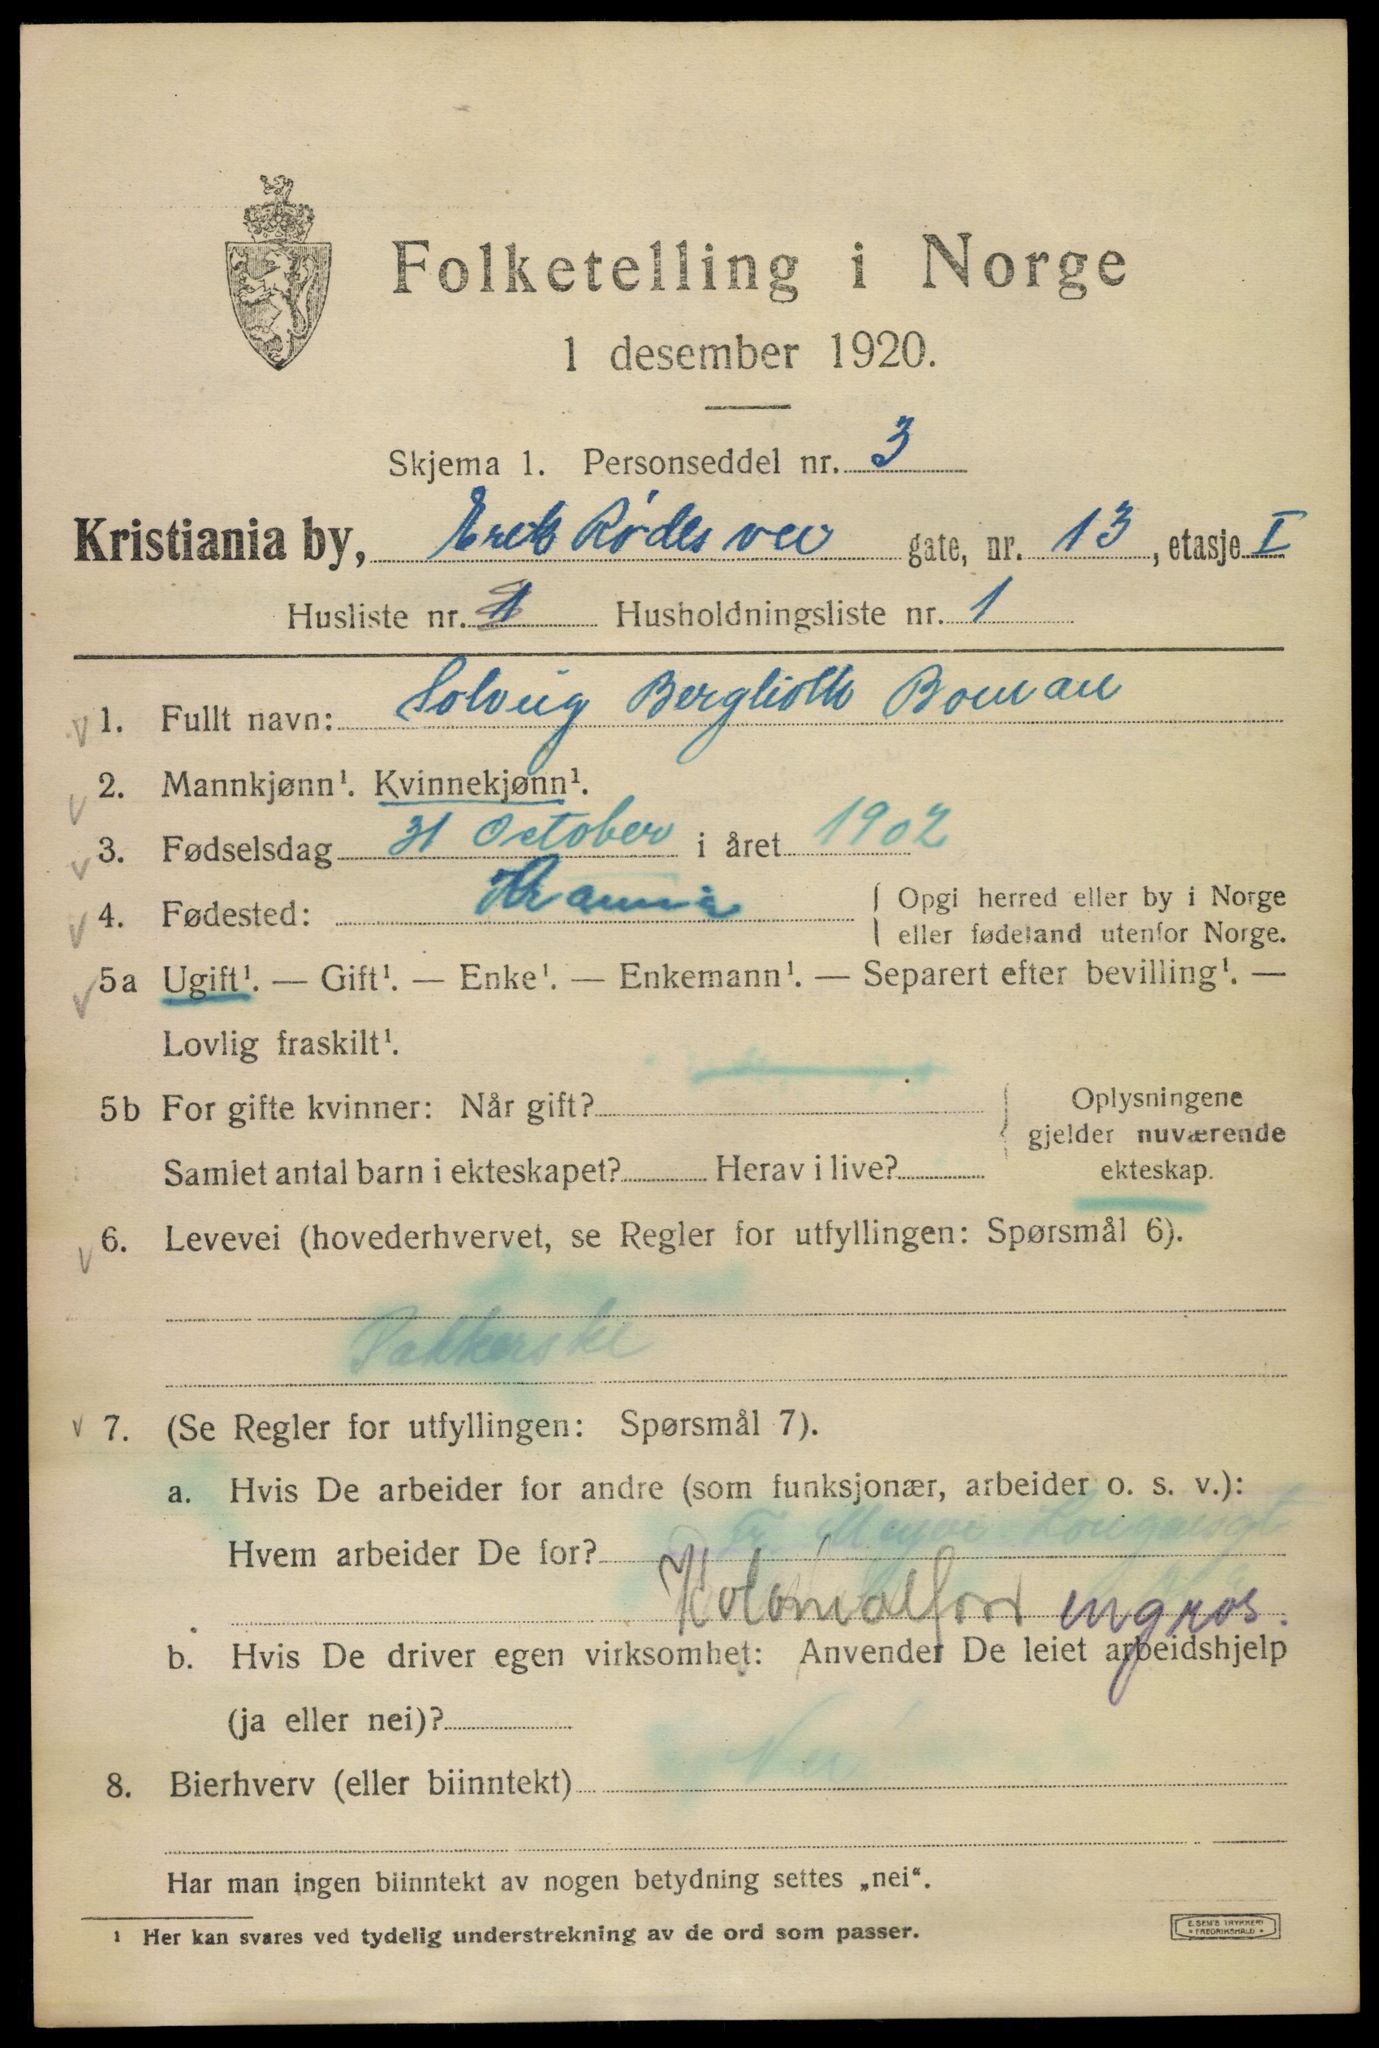 Folketelling i Norge
1 desember 1920.
Skjema 1. Personseddel nr. 3
Kristiania by, Rødes vei gate, nr. 13, etasje I
Husliste nr. 1 Husholdningsliste nr. 1
1. Fullt navn: Solveig Berglioth Boman
2. Mannkjønn¹. Kvinnekjønn¹.
3. Fødselsdag 31 October i året 1902
4. Fødested: Kr.ania { Opgi herred eller by i Norge
eller fødeland utenfor Norge.
5a Ugift¹. — Gift¹. — Enke¹. — Enkemann¹. — Separert efter bevilling¹. —
Lovlig fraskilt¹.
5b For gifte kvinner: Når gift? { Oplysningene
gjelder nuværende
Samlet antal barn i ekteskapet? Herav i live? ekteskap.
6. Levevei (hovederhvervet, se Regler for utfyllingen: Spørsmål 6).
Pakkerske
7. (Se Regler for utfyllingen: Spørsmål 7).
a. Hvis De arbeider for andre (som funksjonær, arbeider o. s. v.):
Hvem arbeider De for? Meyer
Kolonialforr engros.
b. Hvis De driver egen virksomhet: Anvender De leiet arbeidshjelp
(ja eller nei)?
8. Bierhverv (eller biinntekt) Nei
Har man ingen biinntekt av nogen betydning settes „nei“.
¹ Her kan svares ved tydelig understrekning av de ord som passer.
E. SEM'S TRYKKERI
FREDRIKSHALD